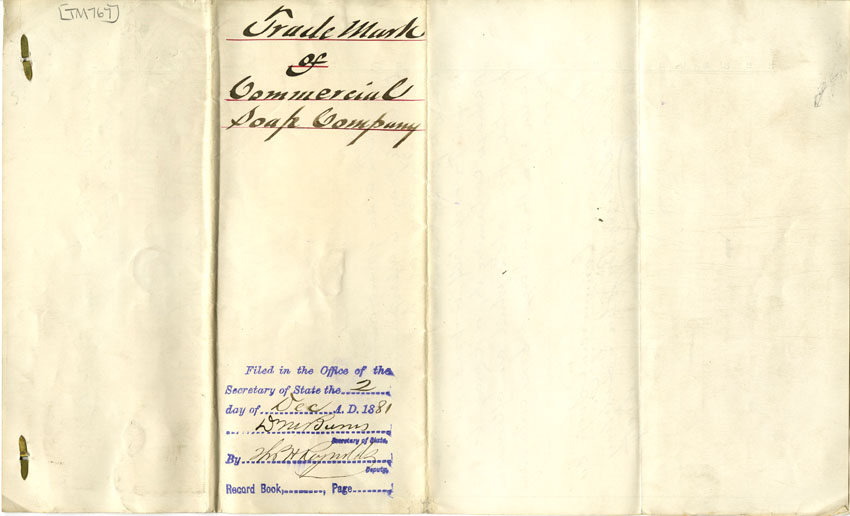 [TM767]
Trade Mark
of
Commercial
Soap Company
Filed in the Office of the
Secretary of State the 2
day of Dec A. D. 1881
D M Burns
Secretary of State.
By Thos H Reynolds
Deputy.
Record Book, , Page